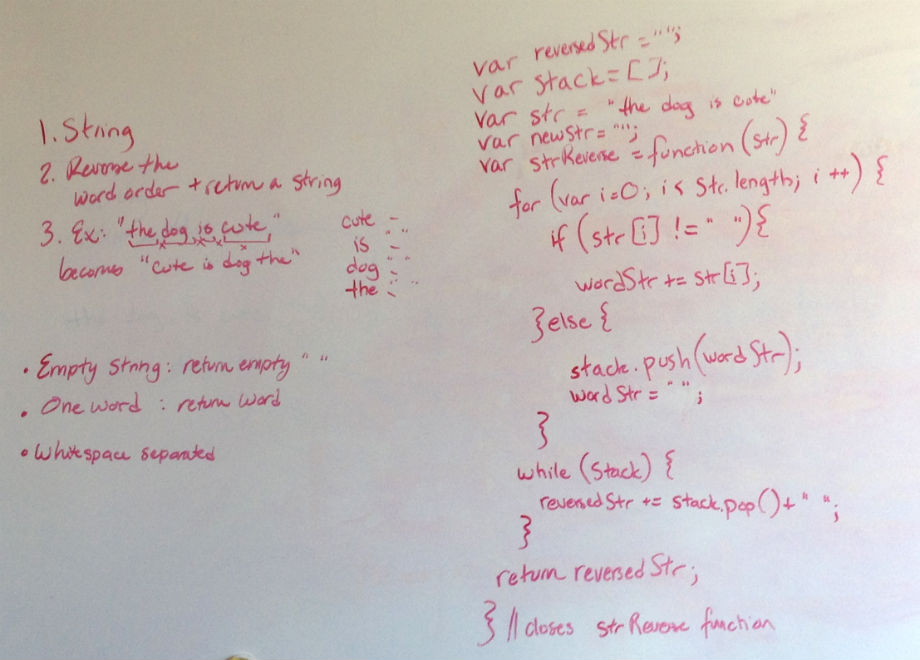 1. String
2. Reverse the
word order + return a string
3. Ex: "the dog is cute,"
becomes "cute is dog the"
cute -
is " "
dog " "
the " "
• Empty string: return empty " "
• One word : return word
• Whitespace separated
var reversedStr = "";
var stack = [];
var str = "the dog is cute"
var newStr = "";
var strReverse = function (str) {
for (var i=0; i < str.length; i++) {
if (str[i] != " "){
wordStr += str[i];
}else {
stack.push(wordStr);
wordStr = " ";
}
while (stack) {
reversedStr += stack.pop()+ " ";
}
return reversedStr;
} // closes strReverse function